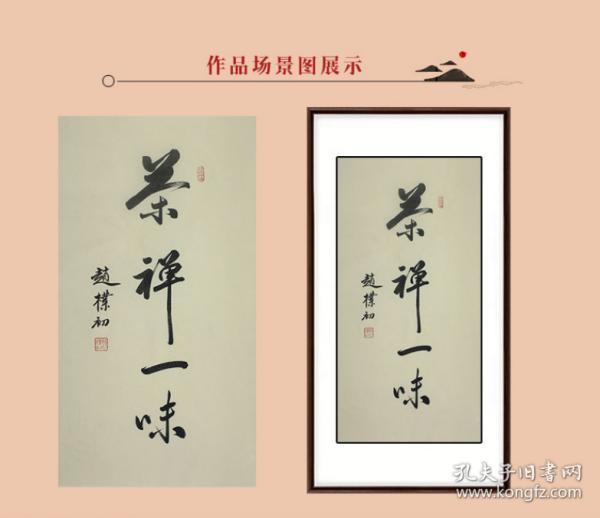 作品场景图展示
茶禅一味
趙樸初
茶禅一味
趙樸初
孔夫子旧书网
www.kongfz.com